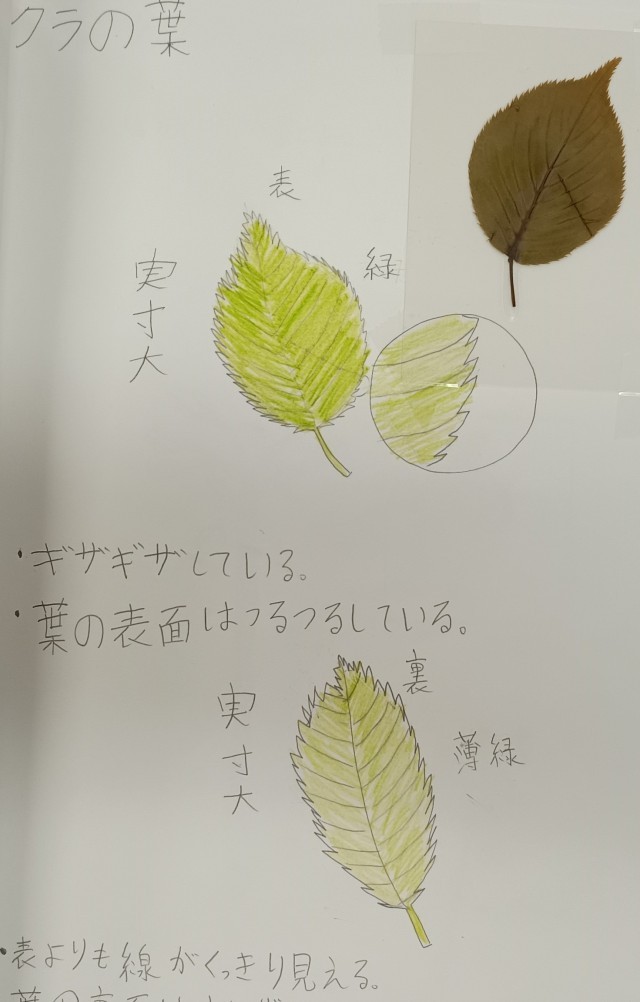 クラの葉
表
緑
実寸大
・ギザギザしている。
・葉の表面はつるつるしている。
裏
実寸大
薄緑
・表よりも線がくっきり見える。